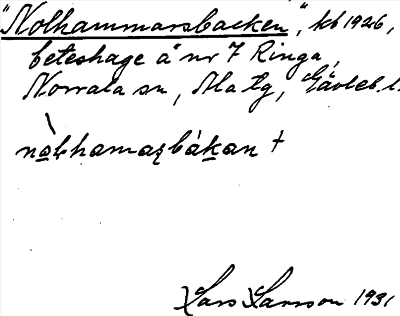 "Nolhammarsbacken", kb 1926,
beteshage å nr 7 Ringa,
Norrala sn, Ala tg, Gävleb. l.
nòlhamaṣbákan †
Lars Larsson 1931